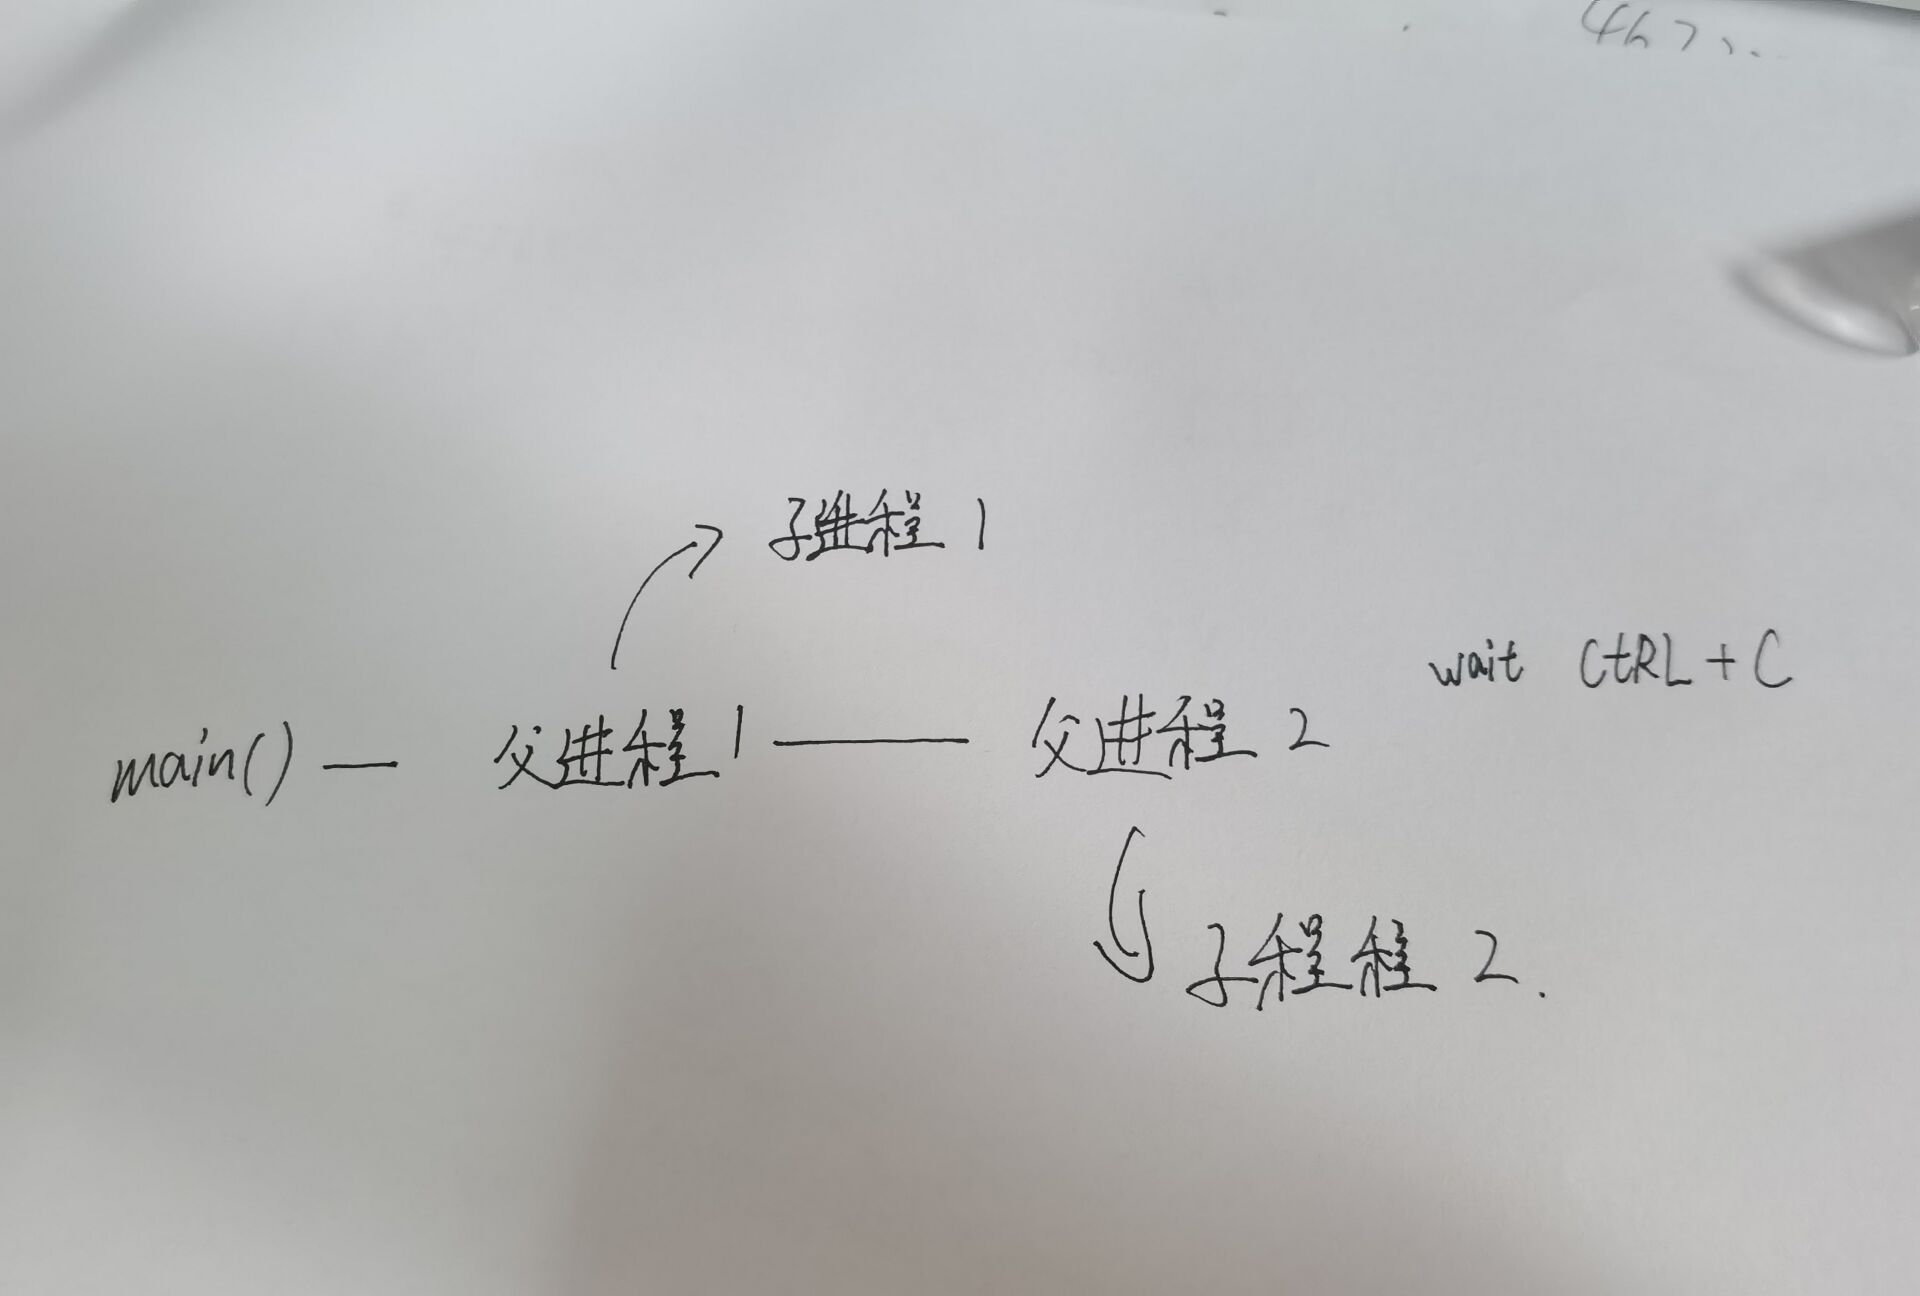 子进程 1
wait CtRL + C
main() — 父进程 1 —— 父进程 2
子程程 2.